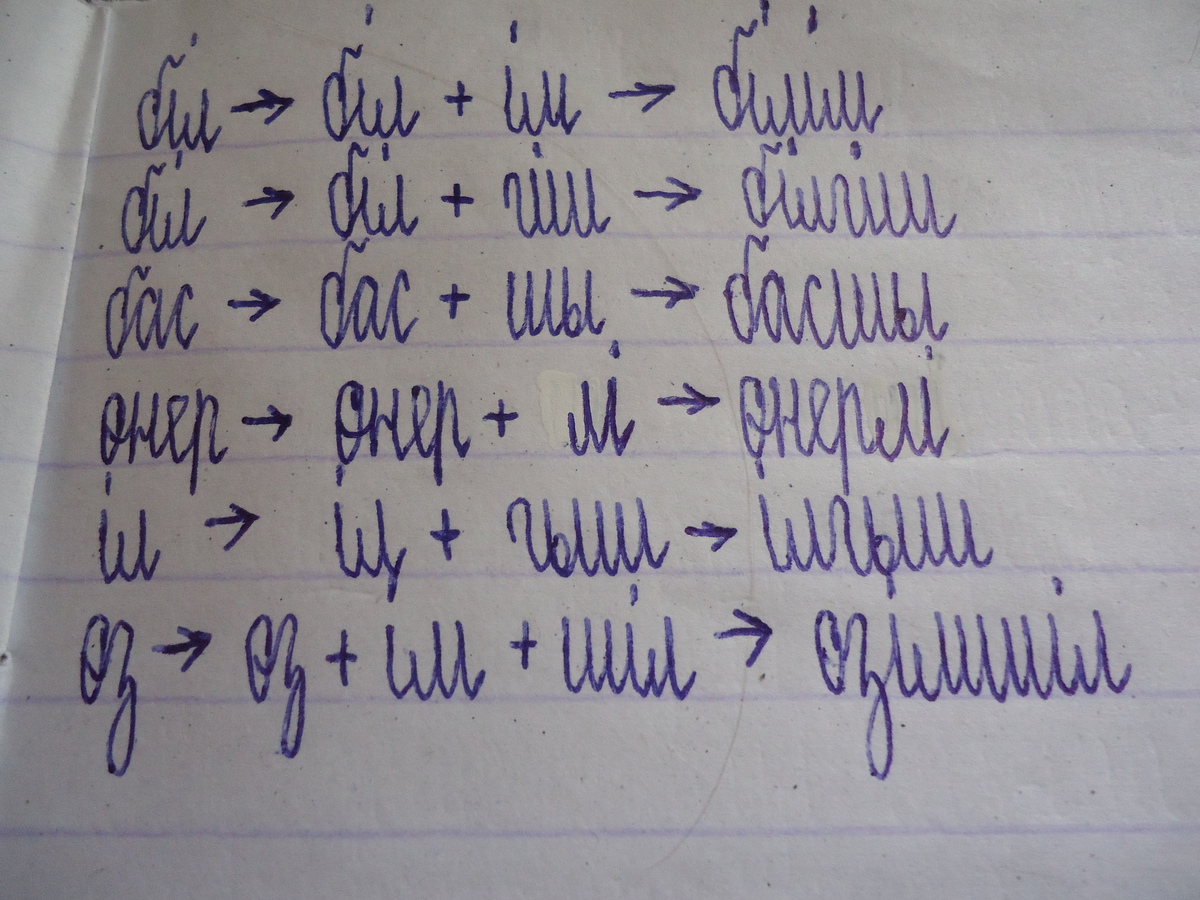 біл → біл + ім → білім
біл → біл + гіш → білгіш
бас → бас + шы → басшы
өнер → өнер + лі → өнерлі
іл → іл + гыш → ілгыш
өз → өз + ім + шіл → өзімшіл